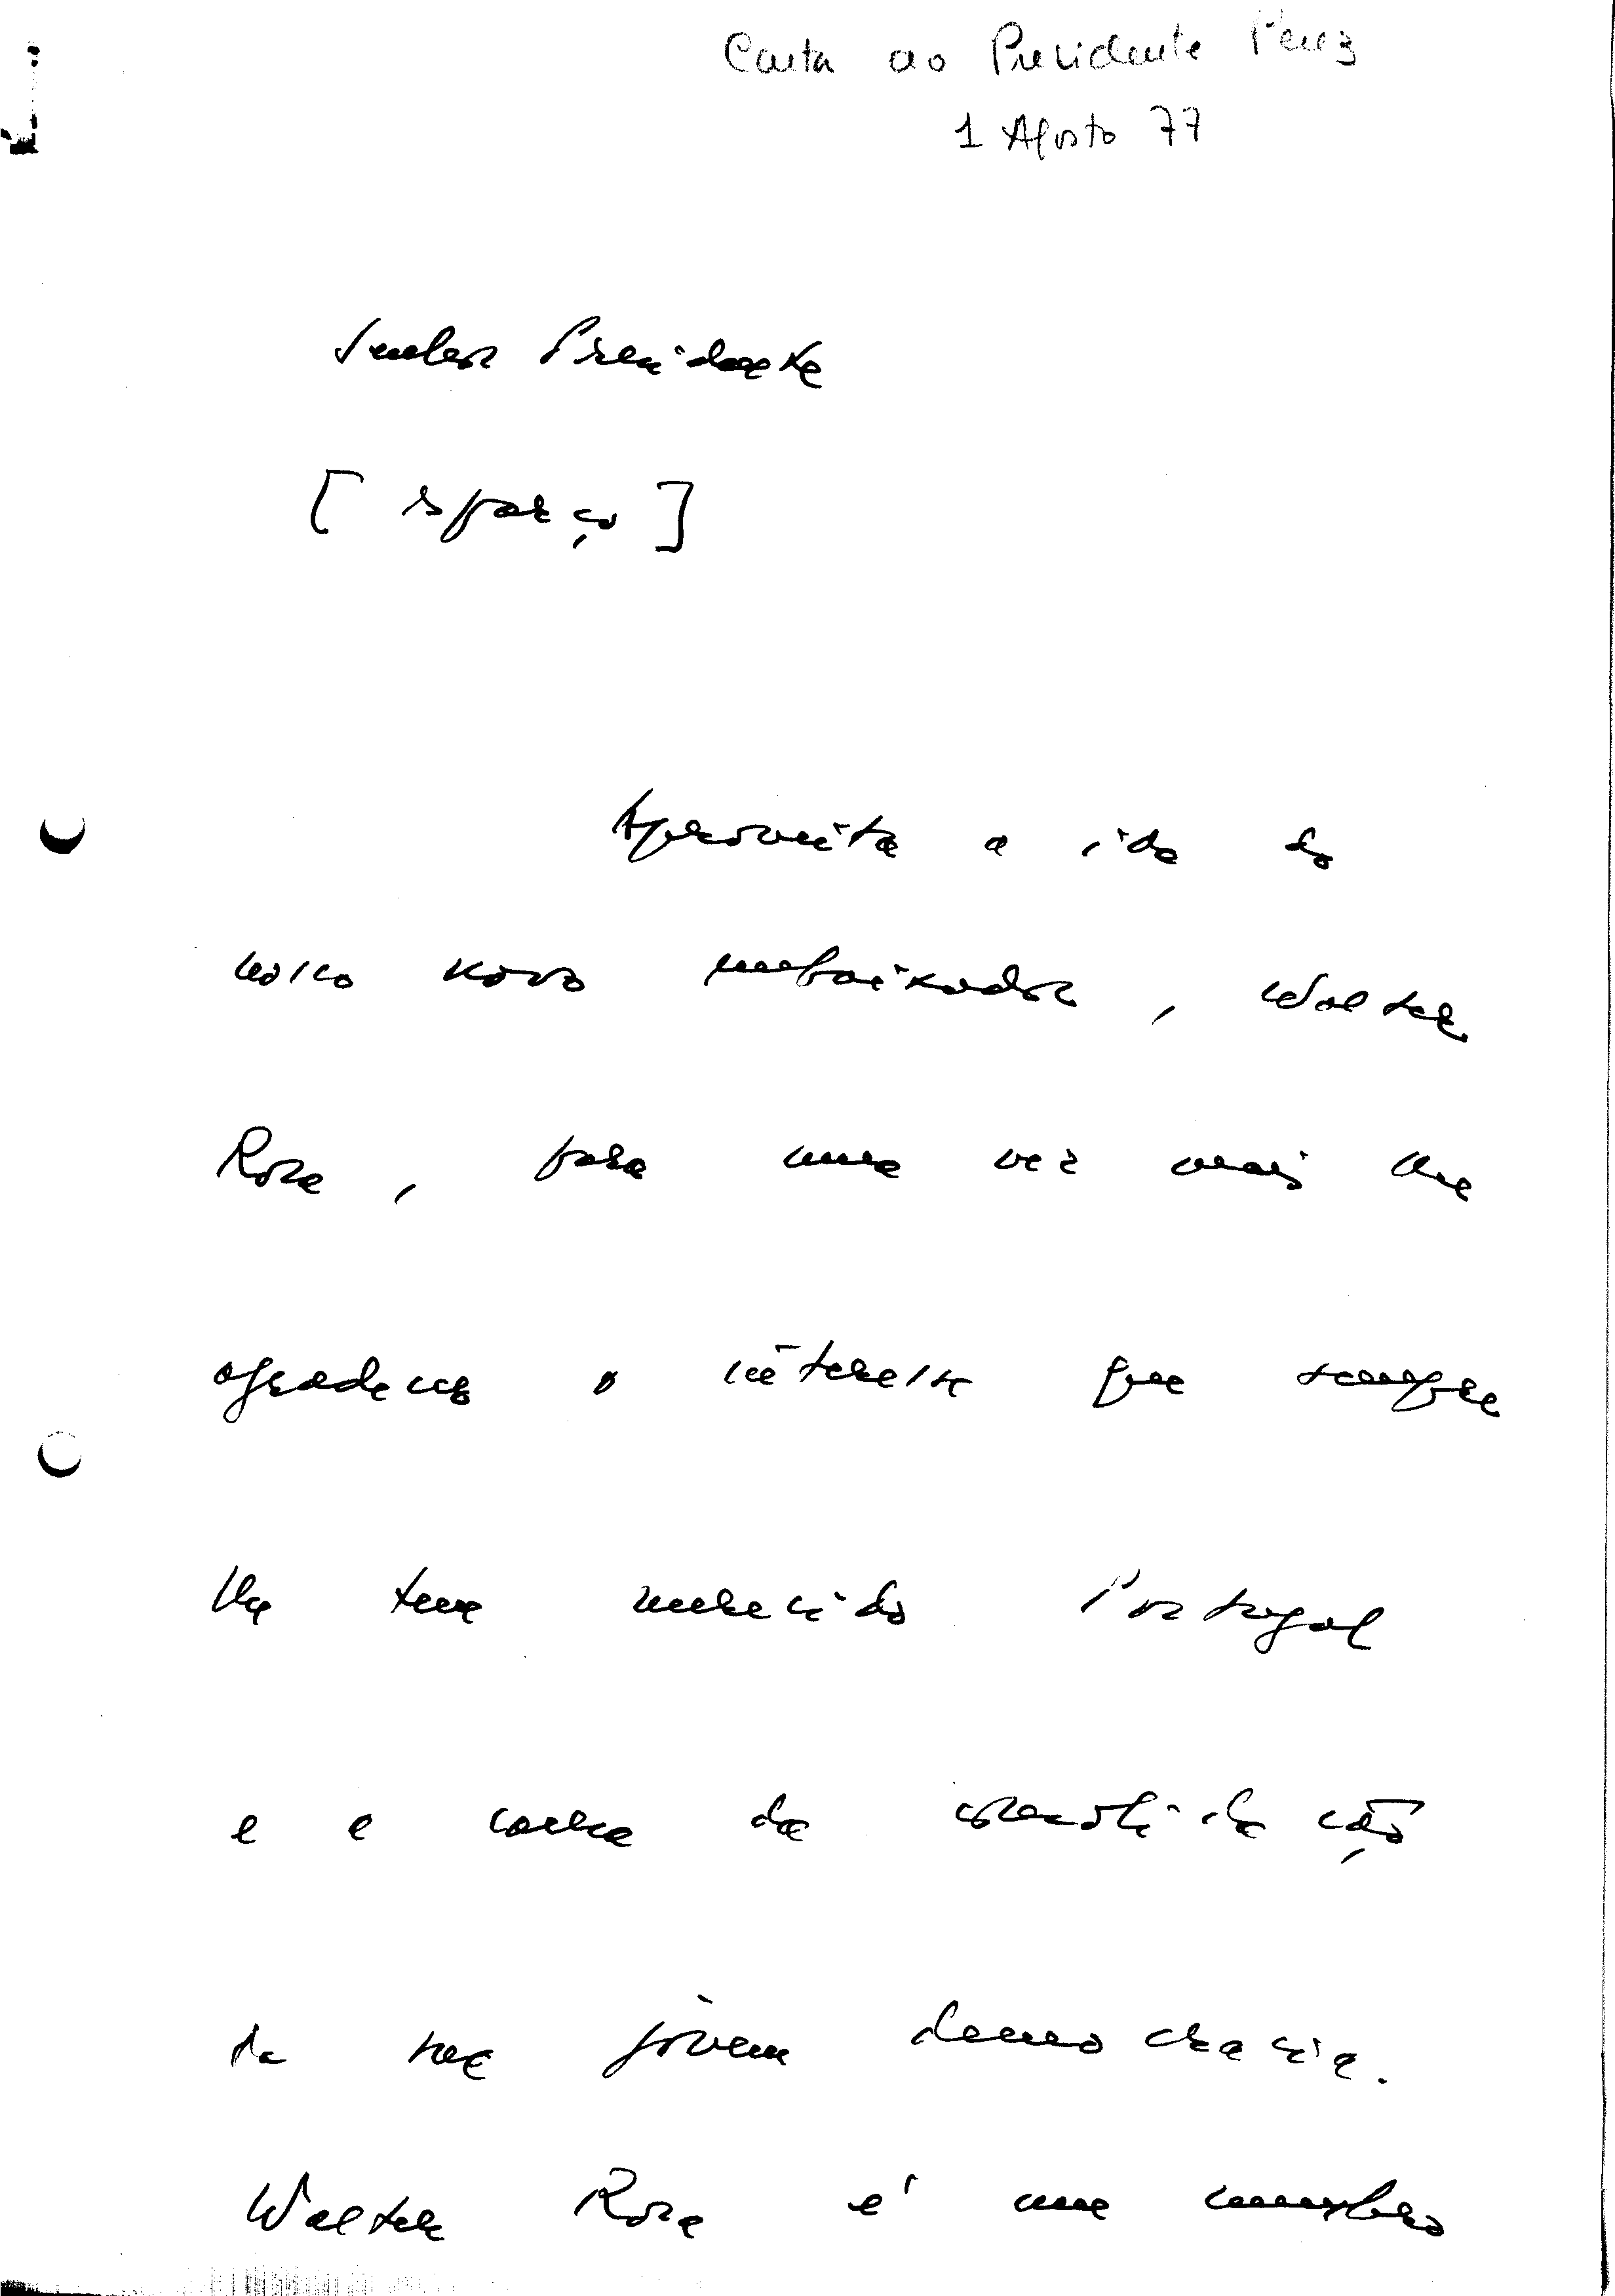 Carta ao Presidente Perez
1 Agosto 77
Senhor Presidente
[ espaço ]
Aproveito a ida do
nosso novo embaixador, Walter
Rosa, para uma vez mais lhe
agradecer o interesse que sempre
lhe tem merecido Portugal
e a causa da consolidação
da sua jóvem democracia.
Walter Rosa é um membro